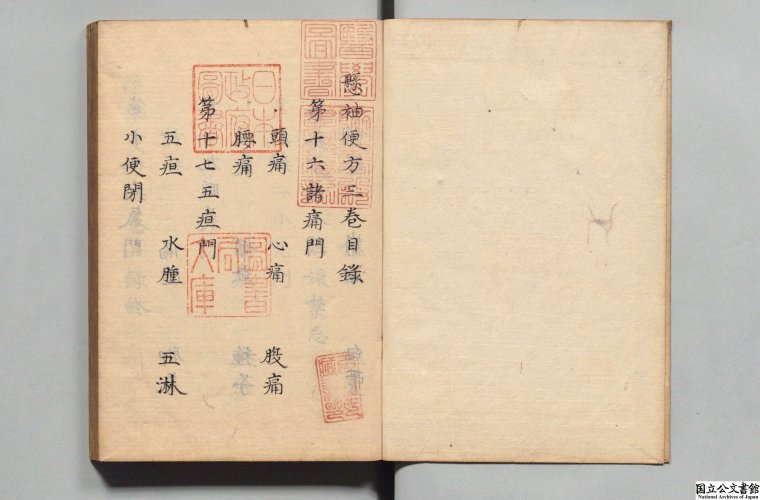 懸袖便方三巻目録
第十六諸痛門
頭痛 心痛 腹痛
腰痛
第十七五疸門
五疸 水腫 五淋
小便閉
日本政府圖書
圖書局文庫
国立公文書館
National Archives of Japan